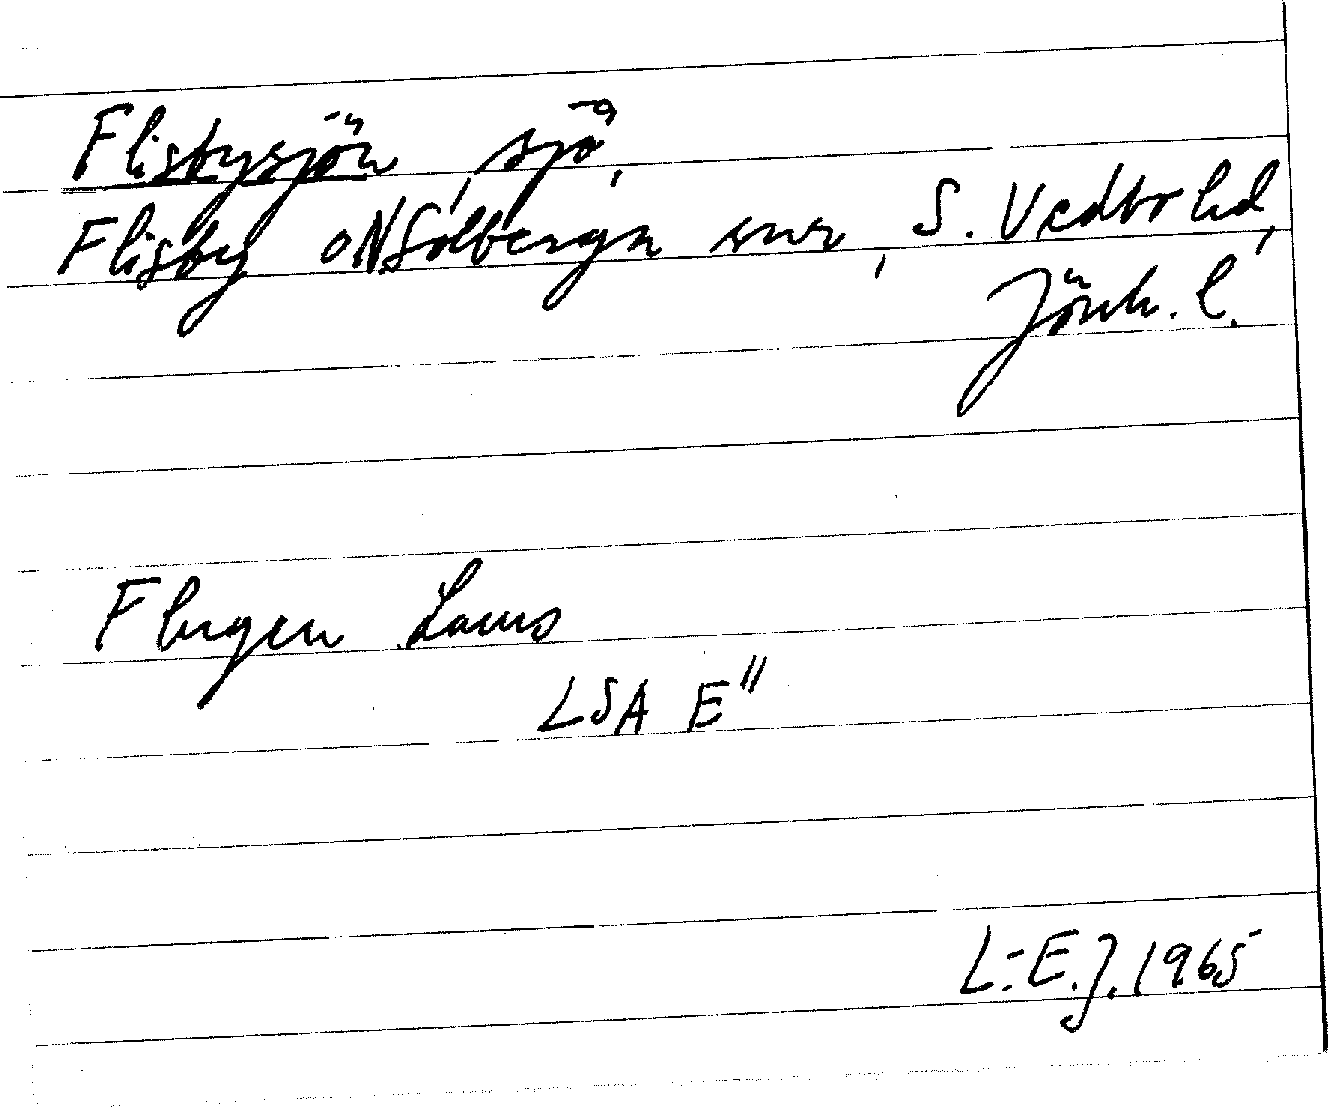 Flisbysjön, sjö,
Flisby o N Solberga snr, S. Vedbo hd,
Jönk. l.
Flugen Lacus
LSA E"
L.-E.J. 1965